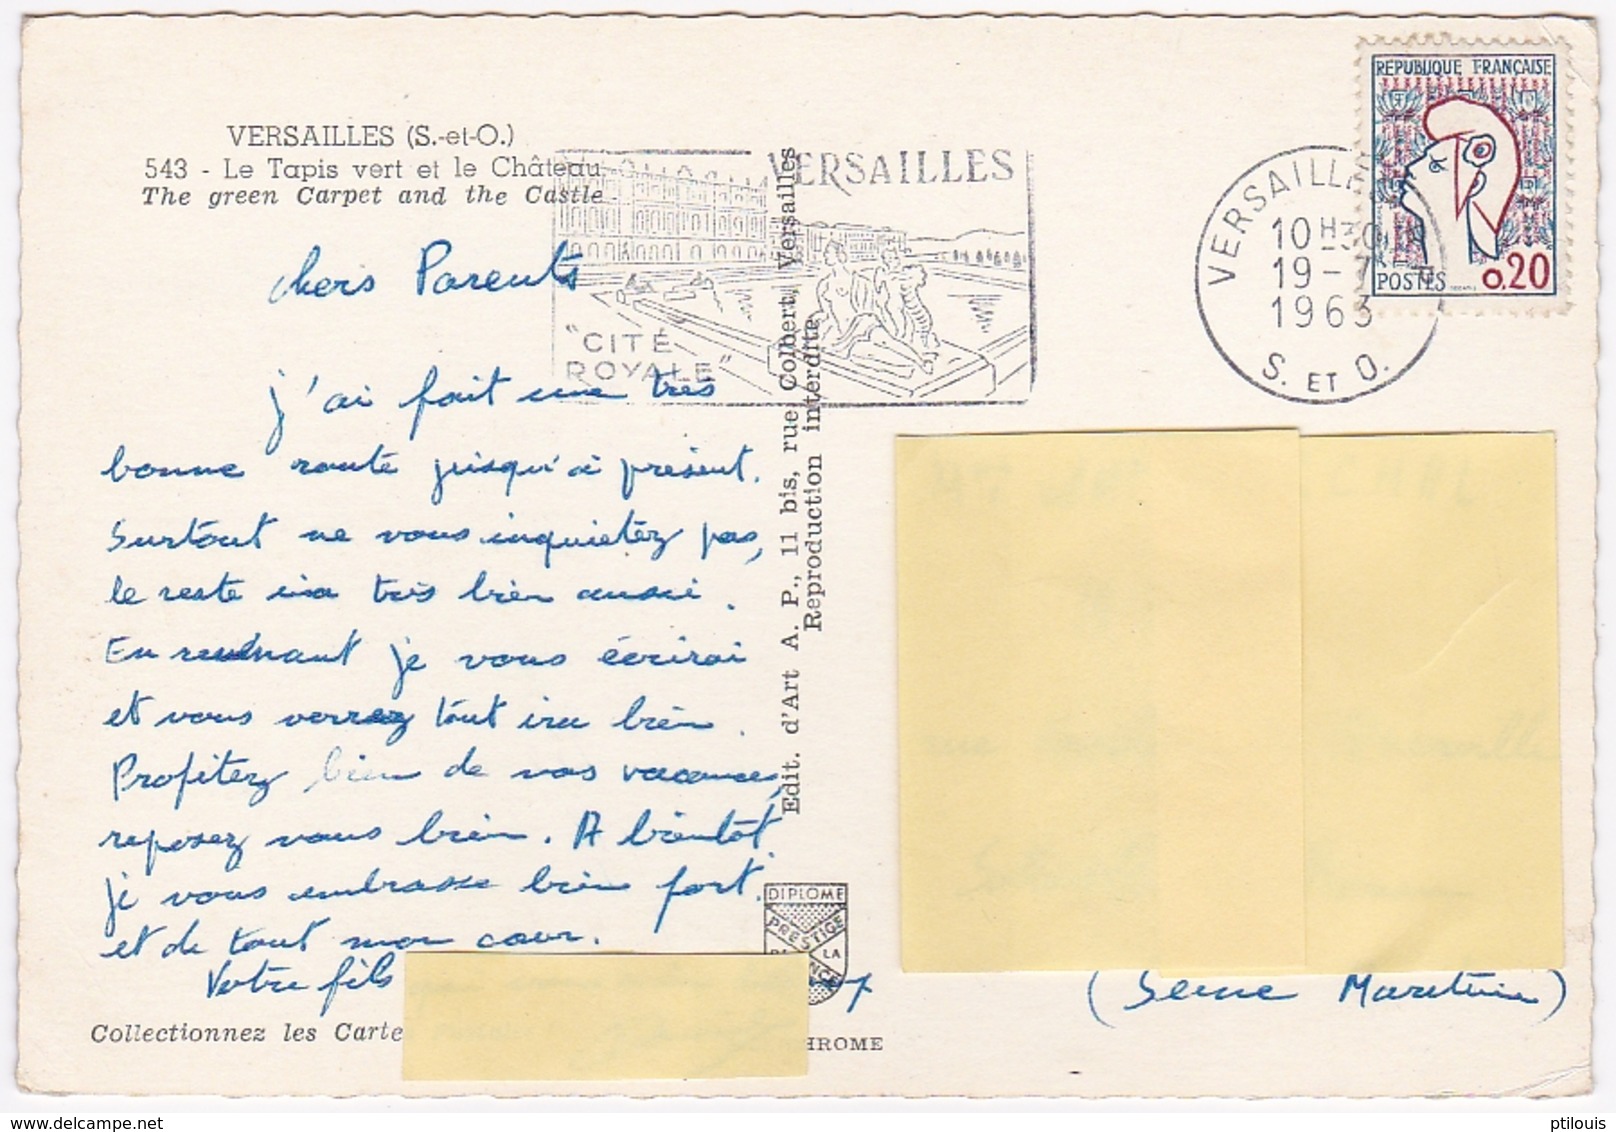 VERSAILLES (S.-et-O.)
543 - Le Tapis vert et le Château
The green Carpet and the Castle
VERSAILLES
"CITÉ
ROYALE"
VERSAILLES
10H30
19-7
1963
S. ET O.
REPUBLIQUE FRANÇAISE
POSTES
0.20
chers Parents
j'ai fait une très
bonne route jusqu'à présent.
Surtout ne vous inquiétez pas,
le reste ira très bien aussi.
En revenant je vous écrirai
et vous verrez tout ira bien.
Profitez bien de vos vacances,
reposez vous bien. A bientôt
je vous embrasse bien fort.
et de tout mon coeur.
Votre fils
Edit. d'Art A. P., 11 bis, rue Colbert, Versailles
Reproduction interdite
DIPLOME
PRESTIGE
LA
(Seine Maritime)
Collectionnez les Carte
HROME
ptilouis